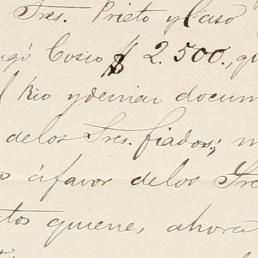 Sres. Prieto y Caso
Cosio $ 2.500., qu
Rio y demas docum
de los Sres. fiados; m
á favor de los Sre
tos quiene, ahora